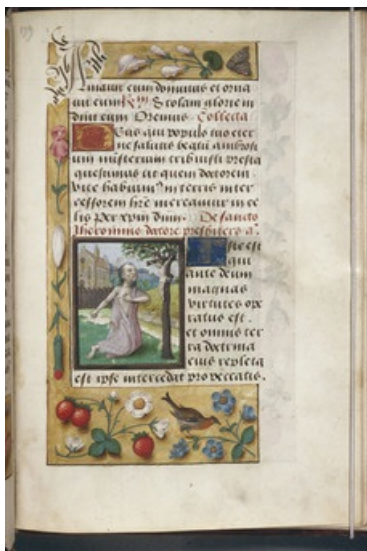 Amauit eum dominus et orna
uit eum Rm Stolam glorie in
duit eum Oremus. Collecta
Deus qui populo tuo eter
ne salutis beatū ambrosi
um ministrum tribuisti presta
quesumus ut quem doctorem
vite habuim⁹ in terris inter
cessorem hr̄e mereamur in ce
lis Per xp̄m dn̄m. De sancto
Iheronimo doctore presbitero a.
Iste est
qui
ante deum
magnas
virtutes ope
ratus est.
et omnis ter
ra doctrina
eius repleta
est ipse intercedat pro peccatis.